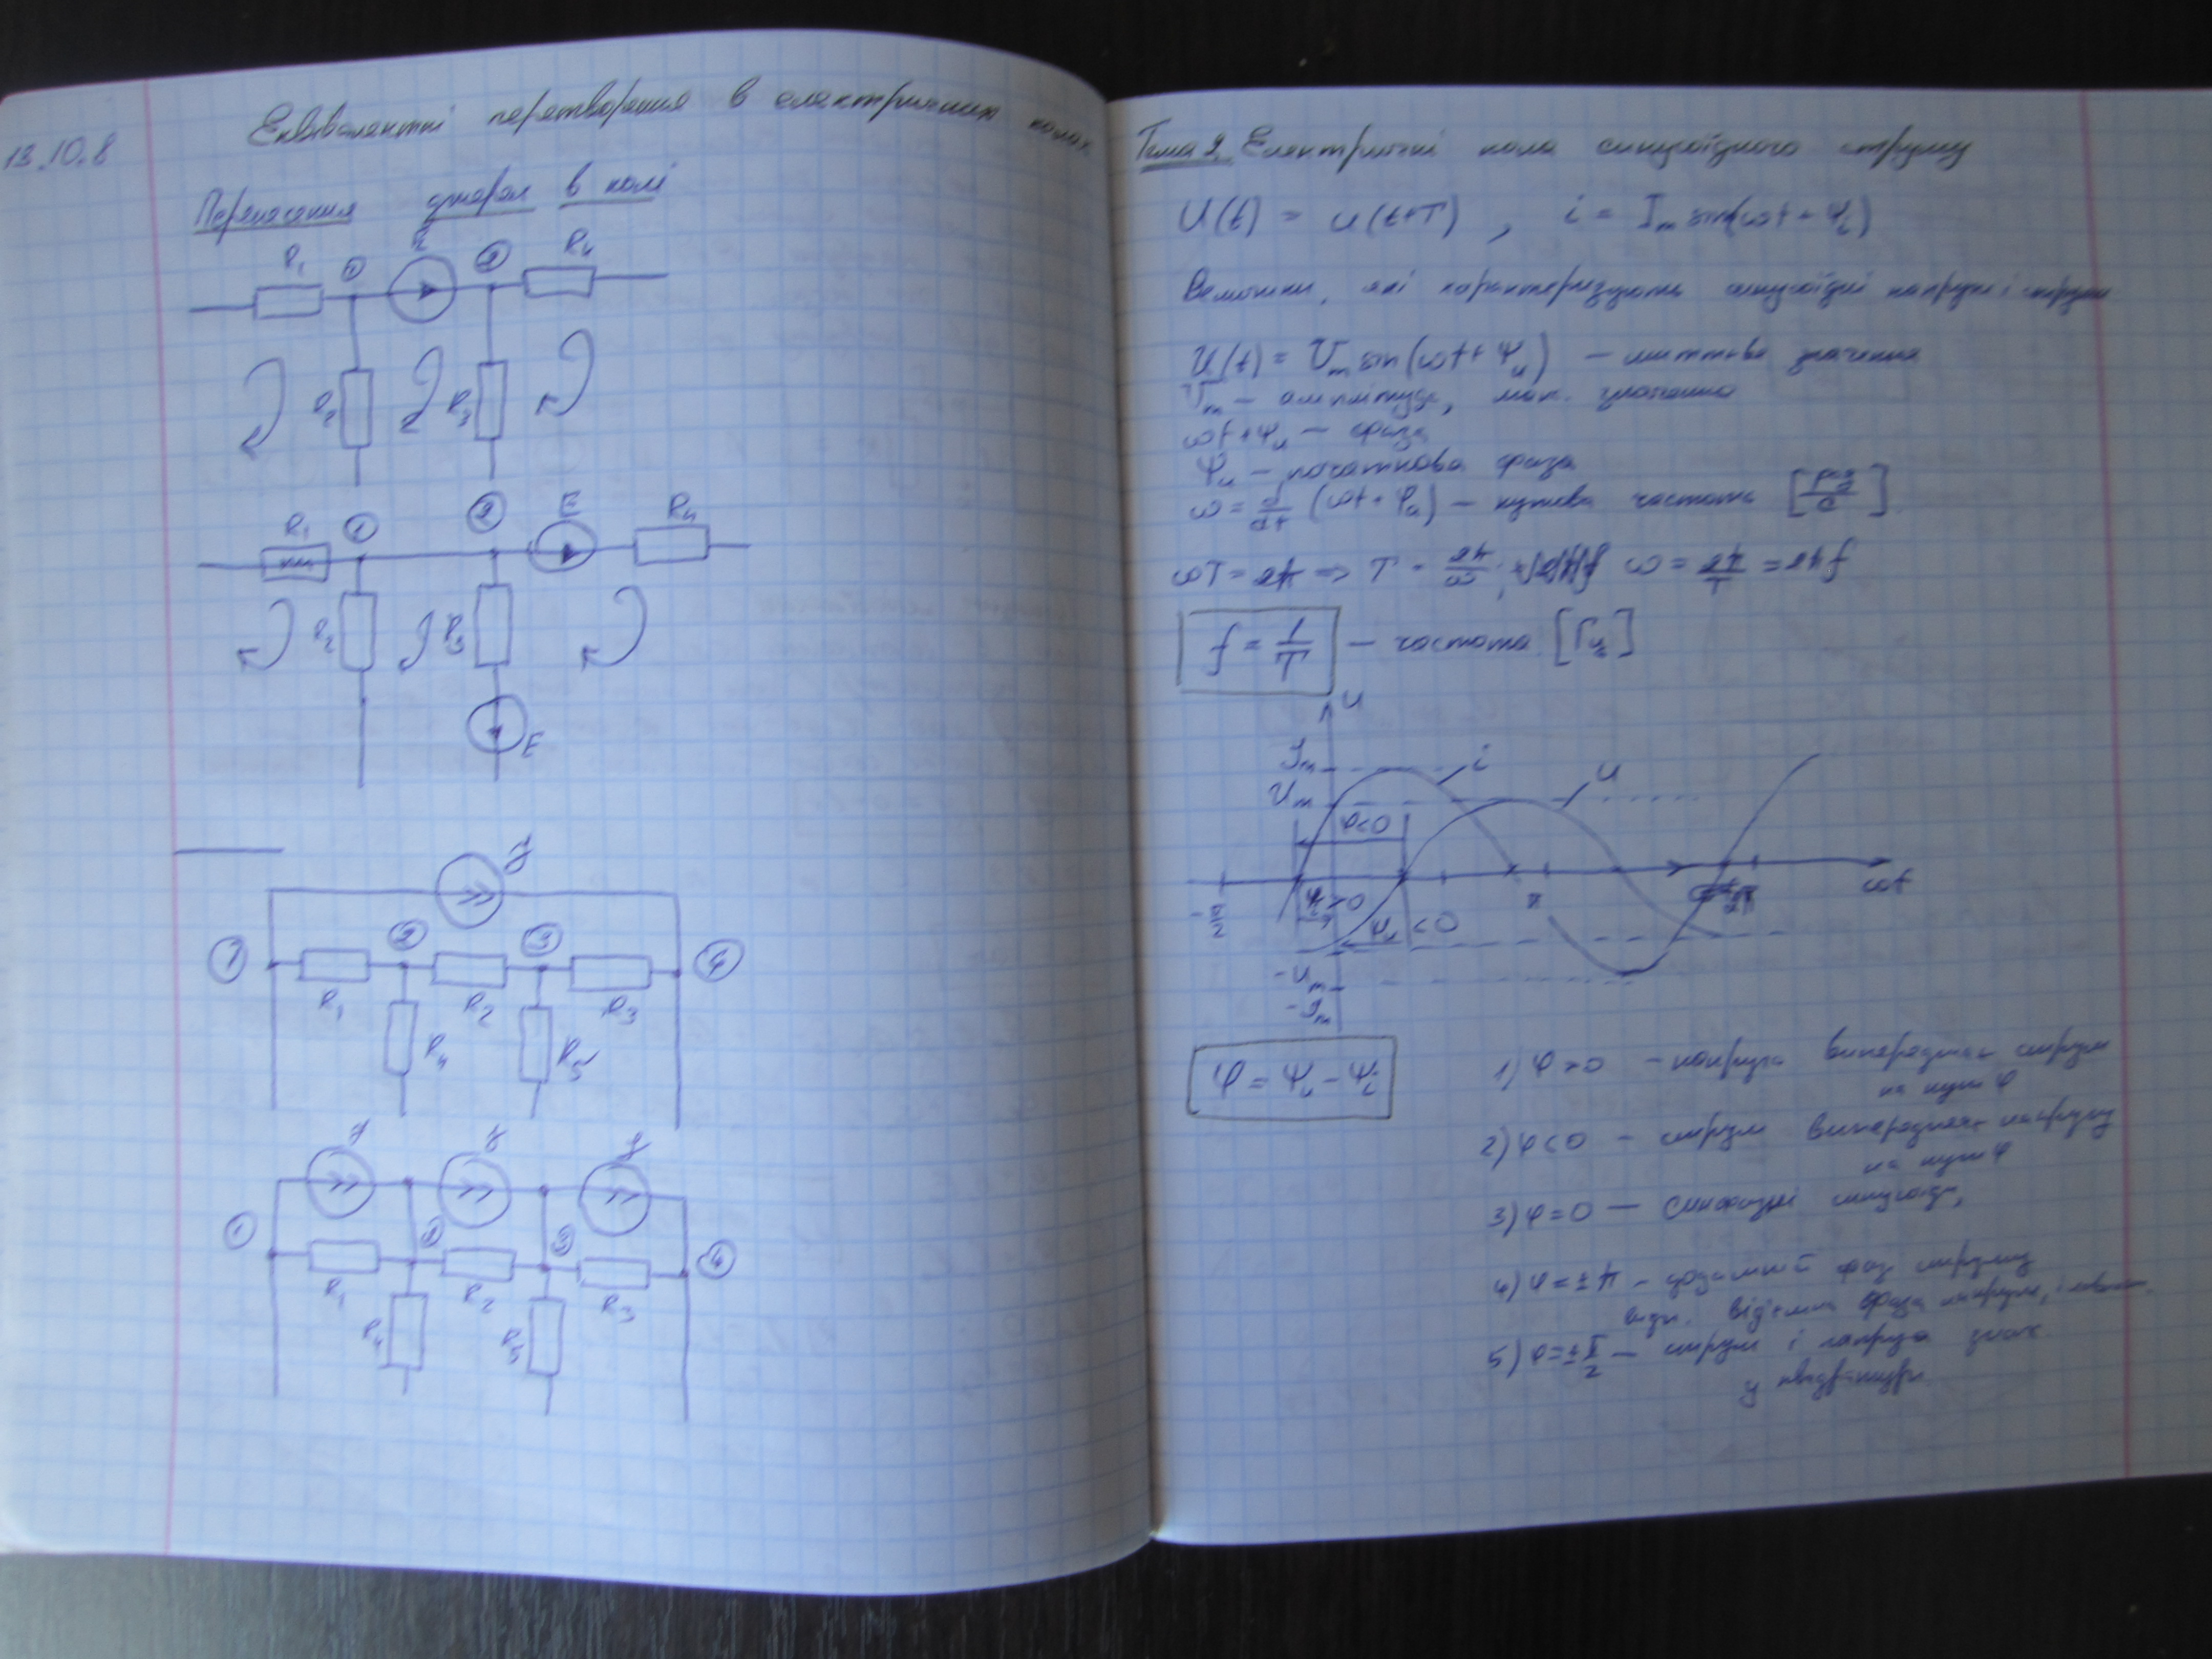 13.10.8
Еквівалентні перетворення в електричних колах
Перенесення джерел в колі
R₁ ① E ② R₄
R₂ R₃
R₁ ① ② E R₄
R₂ R₃
E
J
① ② ③ ④
R₁ R₂ R₃
R₄ R₅
J J J
① ② ③ ④
R₁ R₂ R₃
R₄ R₅
Тема 2. Електричні кола синусоїдного струму
U(t) = u(t+T) , i = Iₘ sin(ωt + Ψᵢ)
Величини, які характеризують синусоїдні напруги і струми
U(t) = Uₘ sin(ωt + Ψᵤ) – миттєве значення
Uₘ – амплітуда, мак. значення
ωt + Ψᵤ – фаза
Ψᵤ – початкова фаза
ω = d/dt (ωt + Ψᵤ) – кутова частота [рад/с]
ωT = 2π ⇒ T = 2π/ω, ω = 2π/T = 2πf
f = 1/T – частота [Гц]
u
Iₘ i
Uₘ u
φ<0
-π/2 Ψᵢ>0 π 2π ωt
Ψᵤ<0
-Uₘ
-Iₘ
φ = Ψᵤ - Ψᵢ
1) φ > 0 – напруга випереджає струм
на кут φ
2) φ < 0 – струм випереджає напругу
на кут φ
3) φ = 0 – синфазні синусоїди,
4) φ = ±π – фаз струму
від'ємна фаза напруги, і
5) φ = ±π/2 – струм і напруга
у квадратурі